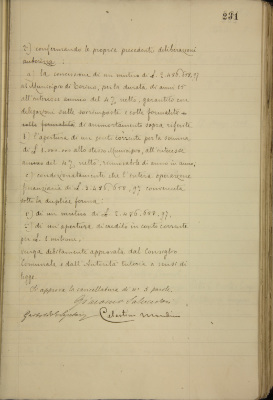 231
2) confermando le proprie precedenti deliberazioni
autorizza:
a) la concessione di un mutuo di £ 2.486.658,97
al Municipio di Torino, per la durata di anni 25
all'interesse annuo del 4% netto, garantito con
delegazioni sulle sovrimposte e colle formalità e
colle formalità di ammortamento sopra riferite.
b) l'apertura di un conto corrente per la somma
di £ 1.000.000 allo stesso Municipio, all'interesse
annuo del 4% netto, rinnovabile di anno in anno,
c) condizionatamente che l'intera operazione
finanziaria di £ 3.486.658,97 convenuta
sotto la duplice forma:
1) di un mutuo di £ 2.486.658,97.
2) di un'apertura di credito in conto corrente
per £ 1 milione.
venga debitamente approvata dal Consiglio
Comunale e dall'Autorità tutoria a sensi di
legge.
Si approva la cancellatura di n° 2 parole.